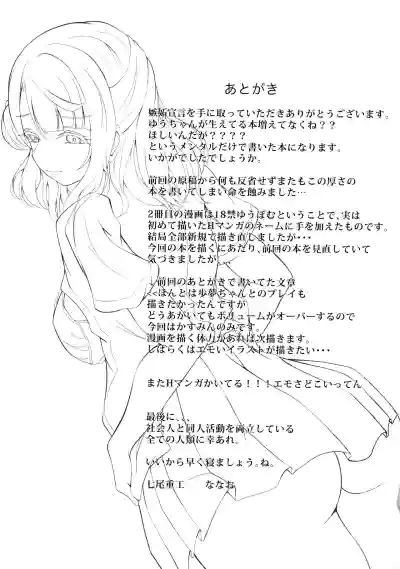 あとがき
嫉妬宣言を手に取っていただきありがとうございます。
ゆうちゃんが生えてる本増えてなくね？？
ほしいんだが？？？？
というメンタルだけで書いた本になります。
いかがでしたでしょうか。
前回の原稿から何も反省せずまたもこの厚さの
本を書いてしまい命を蝕みました…
2冊目の漫画は18禁ゆうぽむということで、実は
初めて描いたHマンガのネームに手を加えたものです。
結局全部新規で描き直しましたが・・・
今回の本を描くにあたり、前回の本を見直していて
気づきましたが…
↓前回のあとがきで書いてた文章
<<ほんとは歩夢ちゃんとのプレイも
描きたかったんですが
どうあがいてもボリュームがオーバーするので
今回はかすみんのみです。
漫画を描く体力があれば次描きます。
しばらくはエモいイラストが描きたい・・・
またHマンガかいてる！！！エモさどこいってん
最後に、、、
社会人と同人活動を両立している
全ての人類に幸あれ。
いいから早く寝ましょう。ね。
七尾重工　ななお